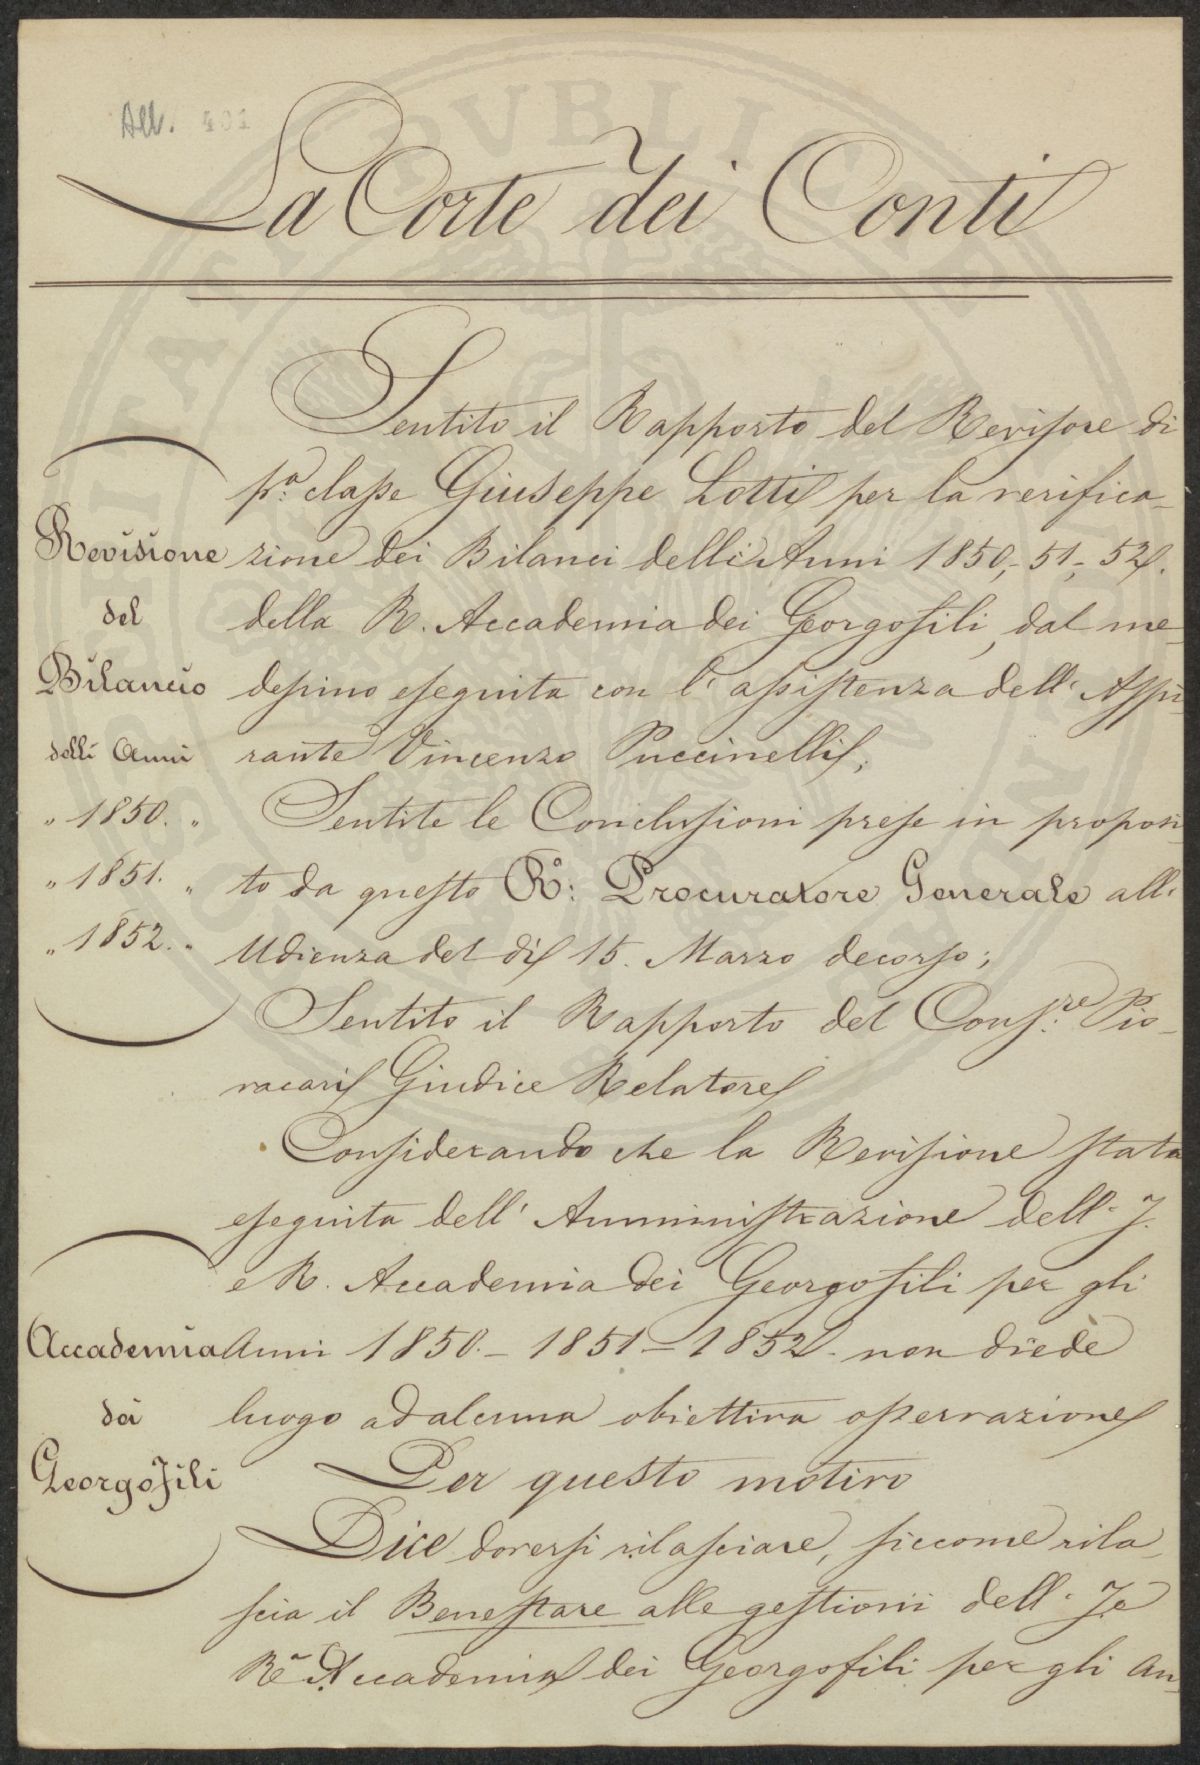 All. 401
La Corte dei Conti
Sentito il Rapporto del Revisore di
pa. classe Giuseppe Lotti per la verifica-
zione dei Bilanci delli Anni 1850,- 51,- 52.
della R. Accademia dei Georgofili, dal me-
desimo eseguita con l' assistenza dell' Aspi-
rante Vincenzo Puccinelli;
Sentite le Conclusioni prese in proposi-
to da questo Ro: Procuratore Generale all'
Udienza del dì 15. Marzo decorso;
Sentito il Rapporto del Consre: Pio-
vacari Giudice Relatore
Considerando che la Revisione stata
eseguita dell' Amministrazione dell' J.
e R. Accademia dei Georgofili per gli
Anni 1850.- 1851- 1852. non diede
luogo ad alcuna obiettiva osservazione
Per questo motivo
Dice doversi rilasciare, siccome rila-
scia il Benestare alle gestioni dell' J. e
R. Accademia dei Georgofili per gli An-
Revisione
del
Bilancio
delli Anni
" 1850. "
" 1851. "
" 1852. "
Accademia
dei
Georgofili